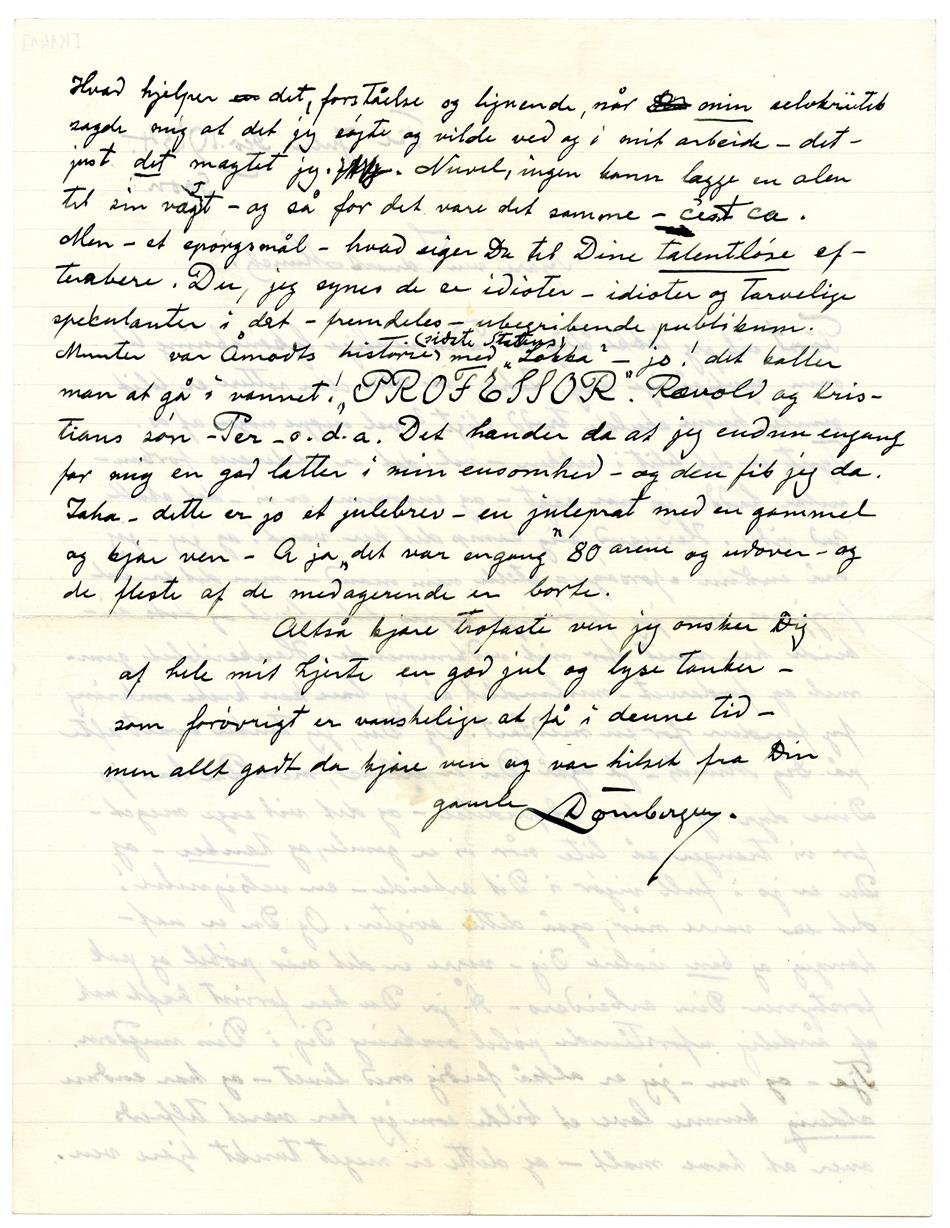 Hvad hjelper det, forståelse og lignende, når min selvkritik
sagde mig at det jeg søgte og vilde ved og i mit arbeide – det –
just det magtet jeg. Nuvel, ingen kann lægge en alen
til sin vægt – og så før det være det samme – c'est ca.
Men – et spörgsmål – hvad siger Du til Dine talentløse ef-
terabere. Du, jeg synes de er idioter – idioter og tarvelige
spekulanter i det – fremdeles – ubegribende publikum.
(sidste Statens)
Munter var Åmodts historie med "Lokka" – jo! det kaller
man at gå i vannet! "PROFESSOR". Revold og Kris-
tians søn – Per – o.d.a. Det hænder da at jeg endnu engang
får mig en god latter i min ensomhed – og den fik jeg da.
Jaha – dette er jo et julebrev – en juleprat med en gammel
og kjær ven – A ja "det var engang" 80 arene og udover – og
de fleste af de medagerende er borte.
Altså kjære trofaste ven jeg ønsker Dig
af hele mit hjerte en god jul og lyse tanker –
som forövrigt er vanskelige at få i denne tid –
men allt godt da kjære ven og vær hilset fra Din
gamle Dørnberger.